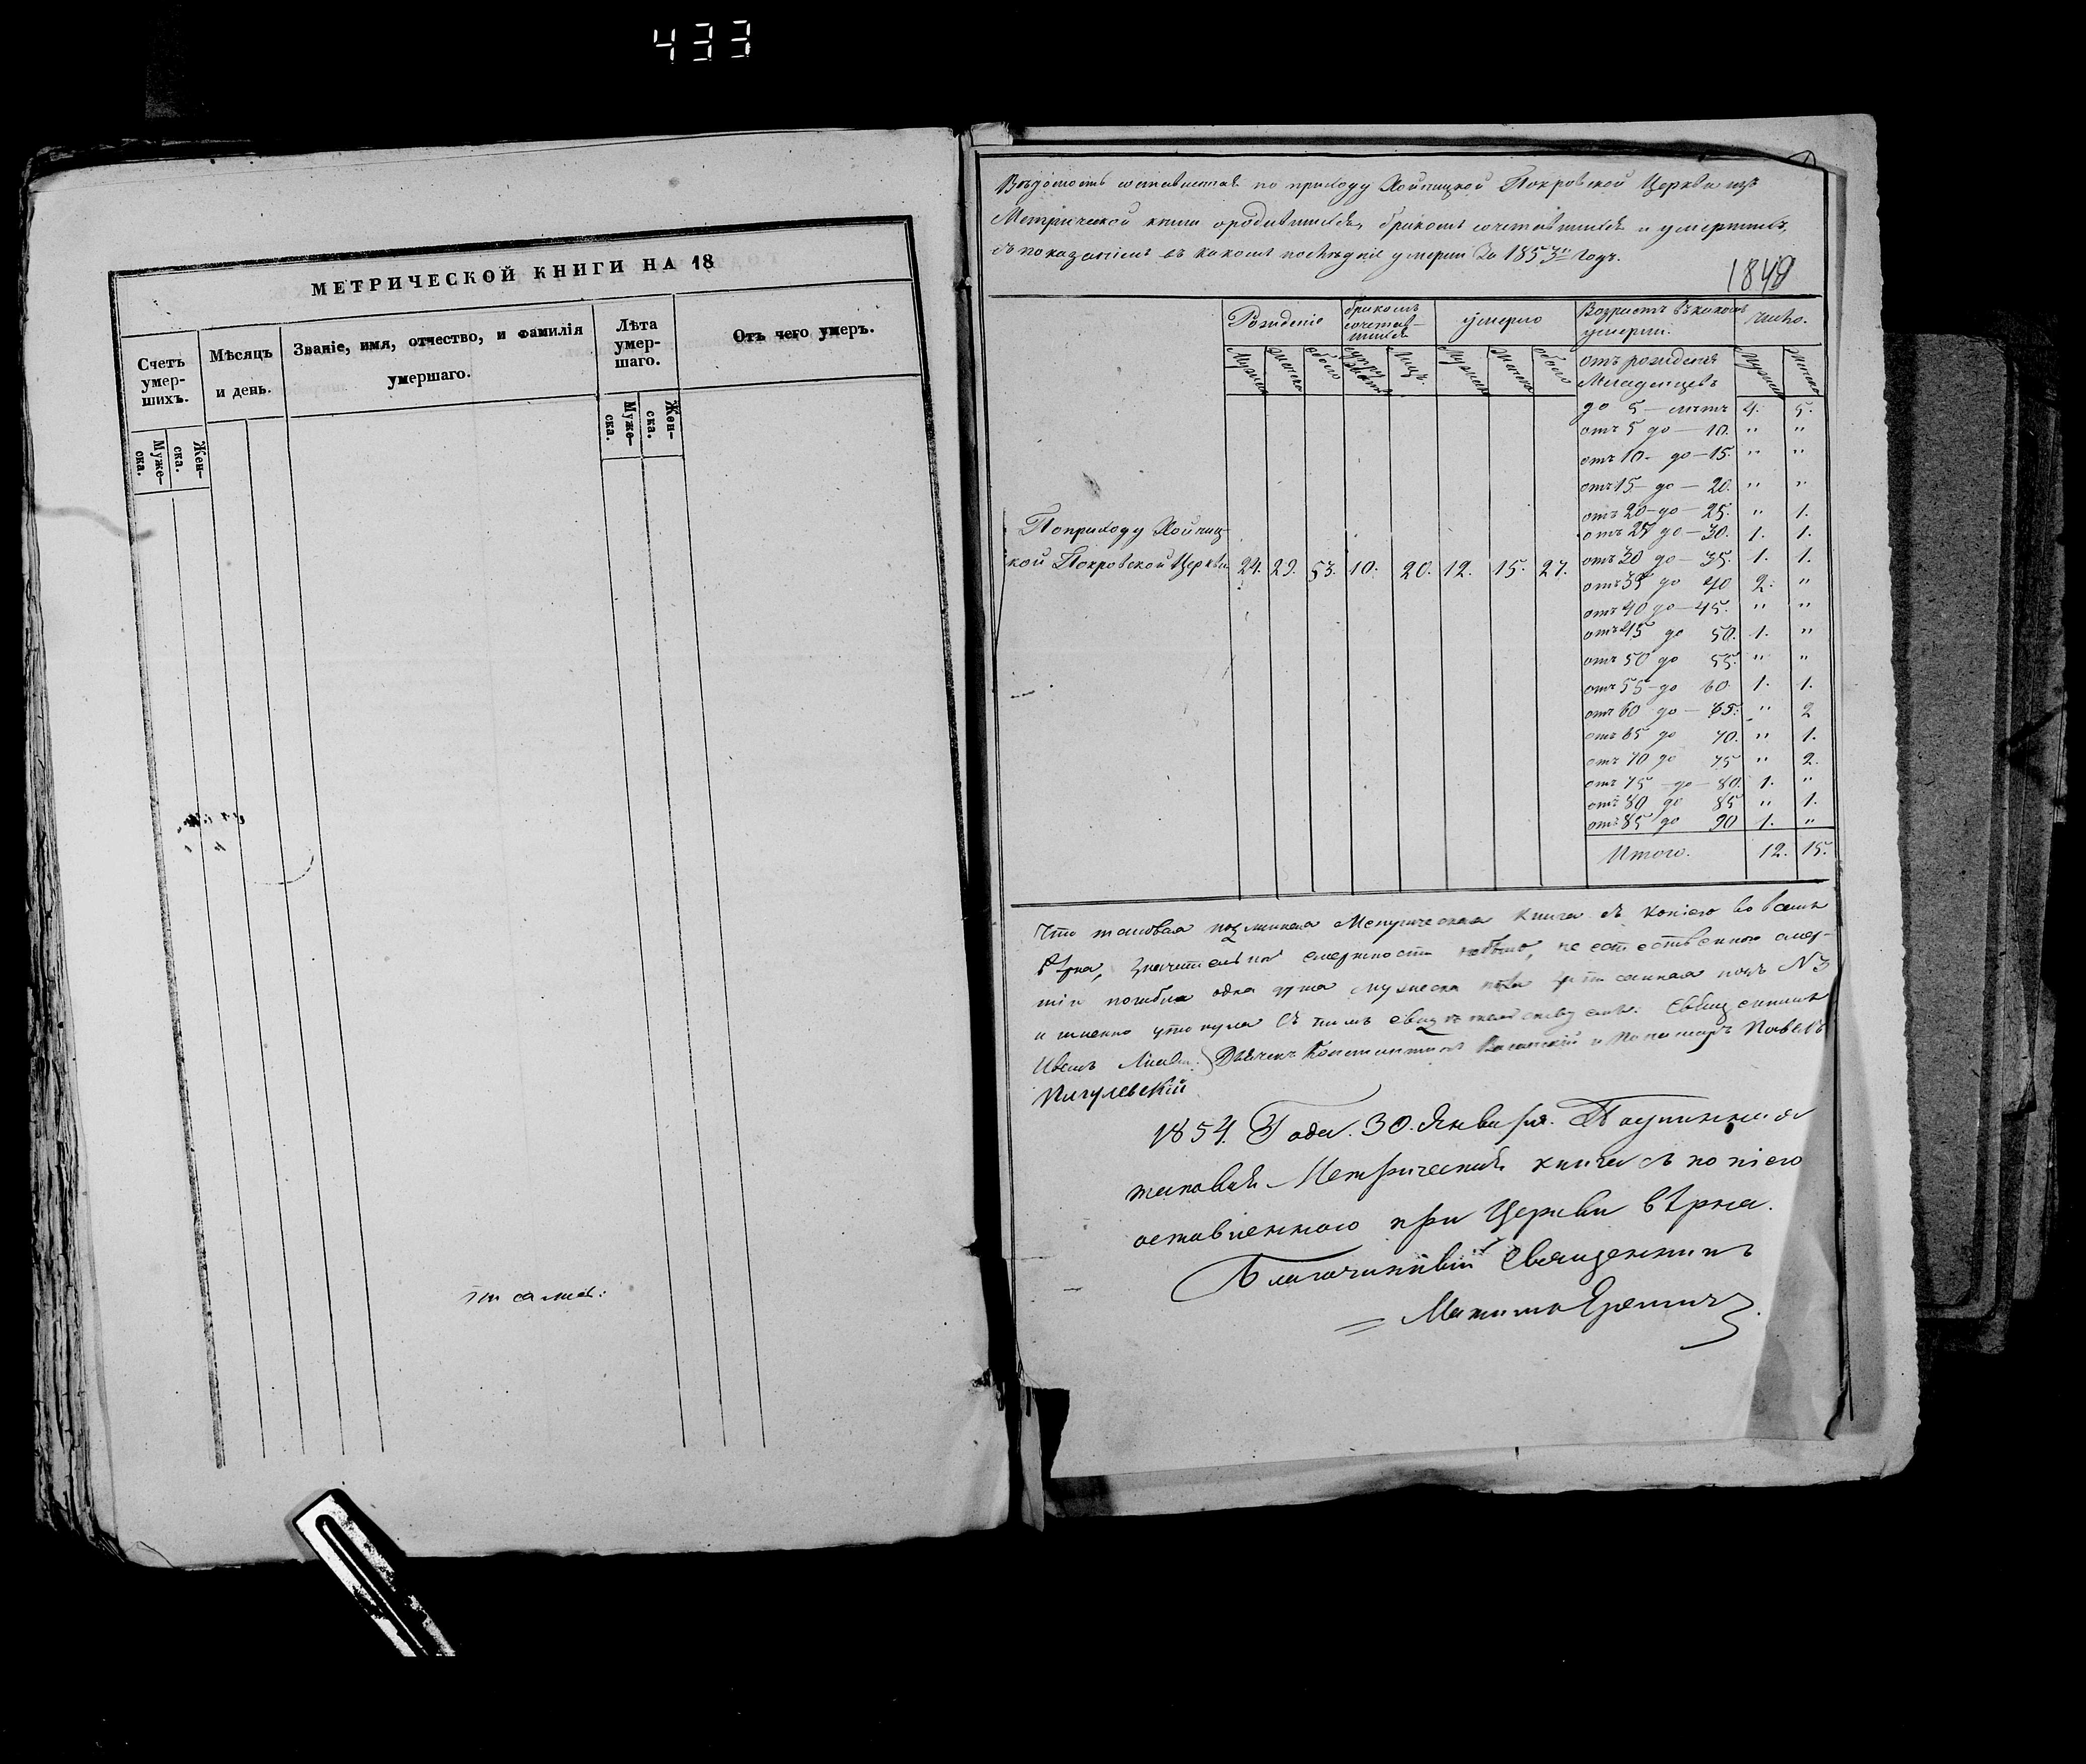 433
МЕТРИЧЕСКОЙ КНИГИ НА 18
Счетъ умер-шихъ.
Мѣсяцъ и день.
Званіе, имя, отчество, и фамилія умершаго.
Лѣта умер-шаго.
Отъ чего умеръ.
Муже-ска.
Жен-ска.
Муже-ска.
Жен-ска.
Вѣдомость составленная по приходу Хойницкой Покровской Церкви изъ
Метрической книги о родившихся, бракомъ сочетавшихся и умершихъ,
съ показаніемъ въ какомъ послѣдніе умерли за 1853й Годъ.
1849
Рожденіе
бракомъ сочетав-шихся
умерло
Возрастъ въ какомъ умерли.
Число.
Мужска
Женска
обоего
Лицъ.
Мужска
Женска
обоего
отъ рожденія
Младенцевъ
Мужска
Женска
до 5 — лѣтъ 4. 5.
отъ 5 до — 10. " "
отъ 10 — до — 15. " "
отъ 15 — до — 20. " "
отъ 20 — до — 25. " 1.
отъ 25 до — 30. 1. 1.
отъ 30 до — 35. 1. 1.
отъ 35 до 40 2. "
отъ 40 до — 45. " "
отъ 45 до 50. 1. "
отъ 50 до 55. " "
отъ 55 — до 60. 1. 1.
отъ 60 до — 65. " 2
отъ 65 до 70. " 1.
отъ 70 до 75 " 2.
отъ 75 — до — 80. 1. "
отъ 80 до 85 " 1.
отъ 85 до 90 1. "
Итого. 12. 15.
По приходу Хойниц-
кой Покровской Церкви 24. 29. 53. 10. 20. 12. 15. 27.
Что таковая подлинная Метрическая книга съ копіею во всемъ
вѣрна, значительной смертности небыло, не естественною смер-
тію погибла одна душа мужеска пола записанная подъ № 3
и именно утонула въ томъ свидѣтельствуемъ. Священникъ
Дьячекъ Константинъ и Пономарь Павелъ
Пигулевскій
1854. Года. 30. Января. Подлинная
таковая Метрическая книга съ копіею
оставленною при Церкви вѣрна.
Благочинный Священникъ
Максимъ Еремичъ